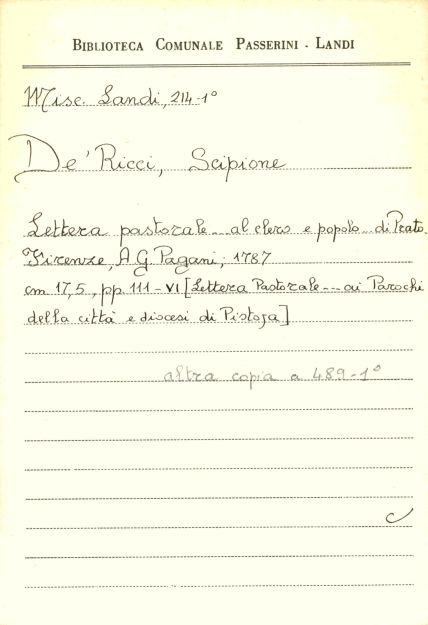 BIBLIOTECA COMUNALE PASSERINI - LANDI
Misc. Landi, 214-1°
De' Ricci, Scipione
Lettera pastorale... al clero e popolo... di Prato.
Firenze, A.G. Pagani, 1787
cm 17,5, pp. 111-VI [Lettera Pastorale... ai Parochi
della città e diocesi di Pistoja]
altra copia a 489-1°